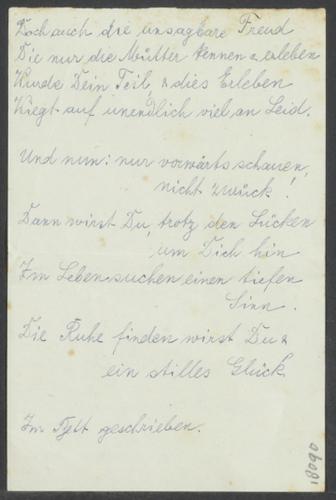 Doch auch die unsagbare Freud
Die nur die Mütter kennen & erleben
Wurde Dein Teil, & dies Erleben
Wiegt auf unendlich viel an Leid.
Und nun: nur vorwärts schauen,
nicht zurück!
Dann wirst Du, trotz den Lücken
um Dich hin
Im Leben suchen einen tiefen
Sinn.
Die Ruhe finden wirst Du &
ein stilles Glück
Im Zelt geschrieben.
18090